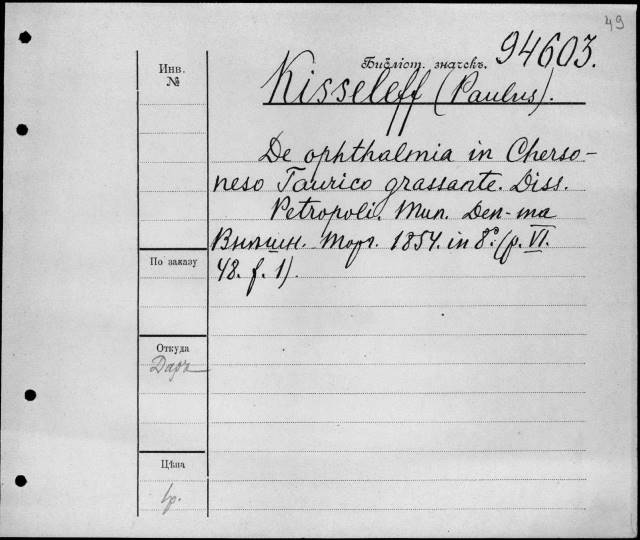 49
Инв.
№
Библіот. значекъ. 94603.
Kisseleff (Paulus).
De ophthalmia in Cherso-
neso Taurico grassante. Diss.
Petropoli. Тип. Деп-та
Внѣшн. Торг. 1854. in 8º. (p. VI.
48. f. 1).
По заказу
Откуда
Даръ
Цѣна